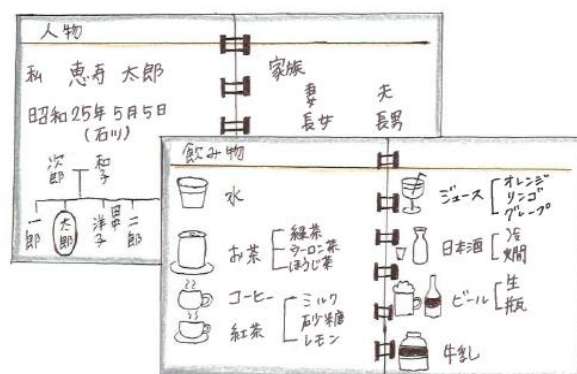 人物
私 恵寿 太郎
昭和25年5月5日
(石川)
次郎 和子
一郎 太郎 洋子 二郎
家族
妻 夫
長女 長男
飲み物
水
お茶 緑茶
ウーロン茶
ほうじ茶
コーヒー
紅茶
ミルク
砂糖
レモン
ジュース オレンジ
リンゴ
グレープ
日本酒 冷
燗
ビール 生
瓶
牛乳